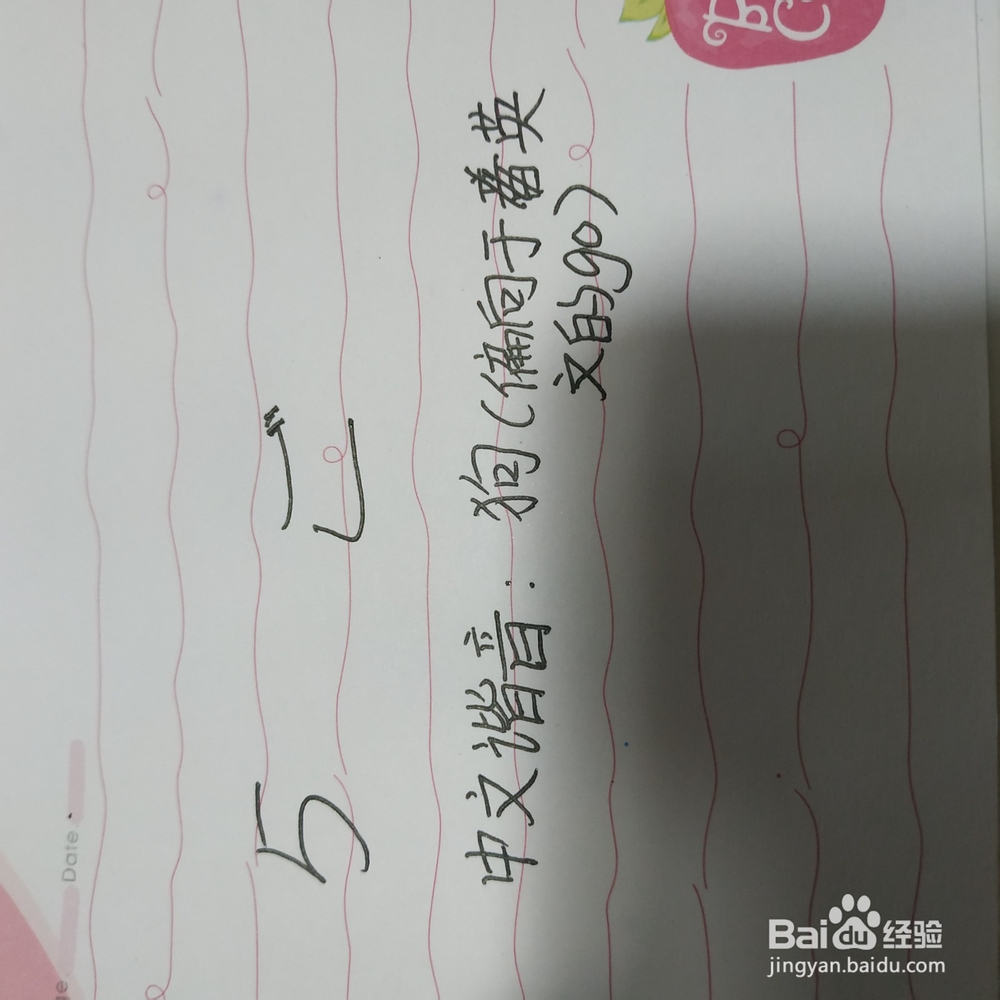 Date
5 ご
中文谐音：狗（偏向于英
文的go）
Baidu经验
jingyan.baidu.com